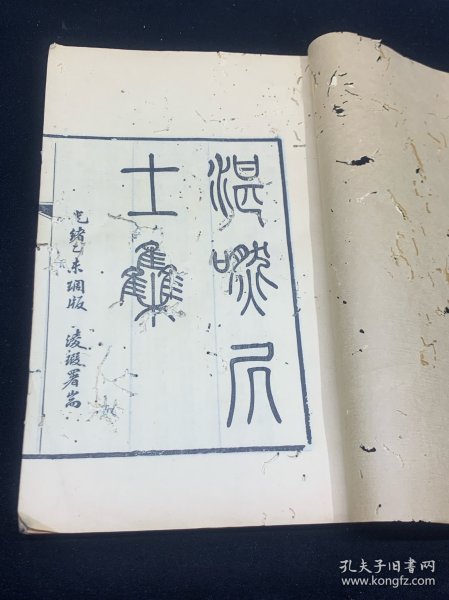 湛然居
士集
光緒乙未琱版 淩瑕署耑
孔夫子旧书网
www.kongfz.com